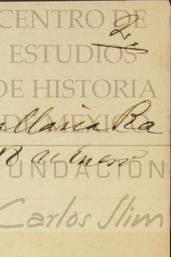 CENTRO DE
2.
ESTUDIOS
DE HISTORIA
DE MÉXICO
Maria Ra
18 de Enero
FUNDACIÓN
Carlos Slim